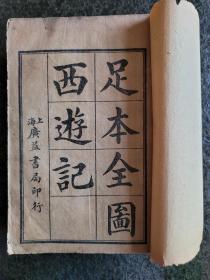 足本全圖
西遊記
上海廣益書局印行